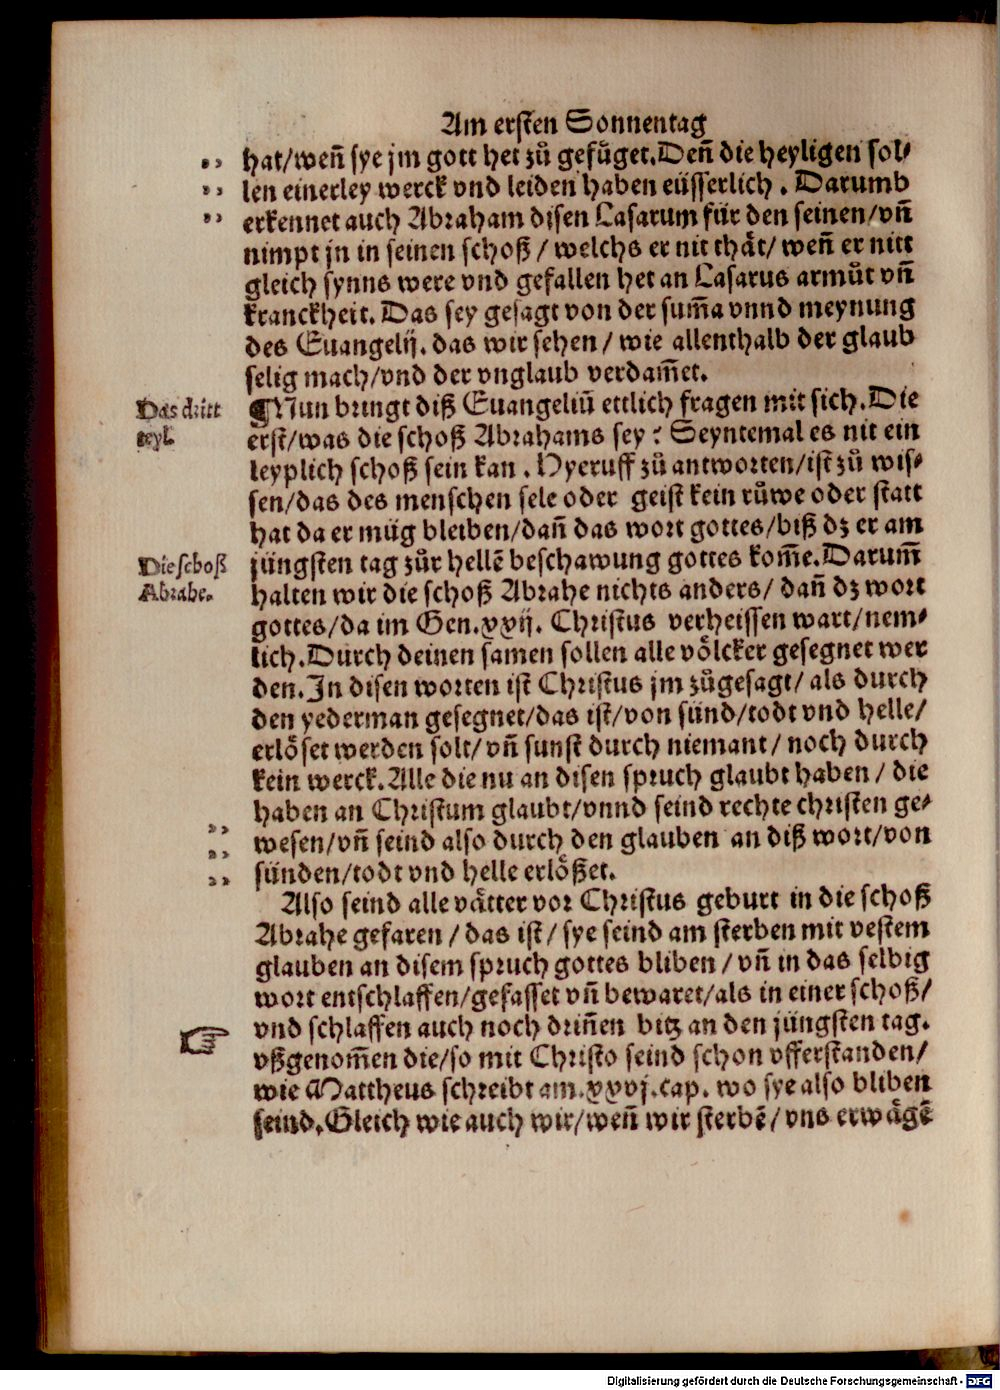 Am ersten Sonnentag
hat/wen̄ sye jm gott het zů gefůget. Den̄ die heyligen sol-
len einerley werck vnd leiden haben eüsserlich. Darumb
erkennet auch Abraham disen Lasarum für den seinen/vn̄
nimpt jn in seinen schoß/ welchs er nit thåt/ wen̄ er nitt
gleich synns were vnd gefallen het an Lasarus armůt vn̄
kranckheit. Das sey gesagt von der sum̄a vnnd meynung
des Euangelij. das wir sehen/ wie allenthalb der glaub
selig mach/vnd der vnglaub verdam̄et.
Das dritt
teyl.
¶Nun bringt diß Euangeliū ettlich fragen mit sich. Die
erst/was die schoß Abrahams sey? Seyntemal es nit ein
leyplich schoß sein kan. Hyeruff zů antworten/ist zů wis-
sen/das des menschen sele oder geist kein růwe oder statt
hat da er müg bleiben/dan̄ das wort gottes/biß dz er am
Die schoß
Abrahe.
jüngsten tag zůr hellē beschawung gottes kom̄e. Darum̄
halten wir die schoß Abrahe nichts anders/ dan̄ dz wort
gottes/da im Gen.xxij. Christus verheissen wart/nem-
lich. Durch deinen samen sollen alle völcker gesegnet wer
den. In disen worten ist Christus jm zůgesagt/ als durch
den yederman gesegnet/das ist/von sünd/todt vnd helle/
erlöset werden solt/vn̄ sunst durch niemant/ noch durch
kein werck. Alle die nu an disen spruch glaubt haben/ die
haben an Christum glaubt/vnnd seind rechte christen ge-
wesen/vn̄ seind also durch den glauben an diß wort/von
sünden/todt vnd helle erlößet.
Also seind alle våtter vor Christus geburt in die schoß
Abrahe gefaren/ das ist/ sye seind am sterben mit vestem
glauben an disem spruch gottes bliben/ vn̄ in das selbig
wort entschlaffen/gefasset vn̄ bewaret/als in einer schoß/
vnd schlaffen auch noch drin̄en bitz an den jüngsten tag.
vßgenom̄en die/so mit Christo seind schon vfferstanden/
wie Mattheus schreibt am.xxvj.cap. wo sye also bliben
seind. Gleich wie auch wir/wen̄ wir sterbē/ vns erwågē
Digitalisierung gefördert durch die Deutsche Forschungsgemeinschaft - DFG